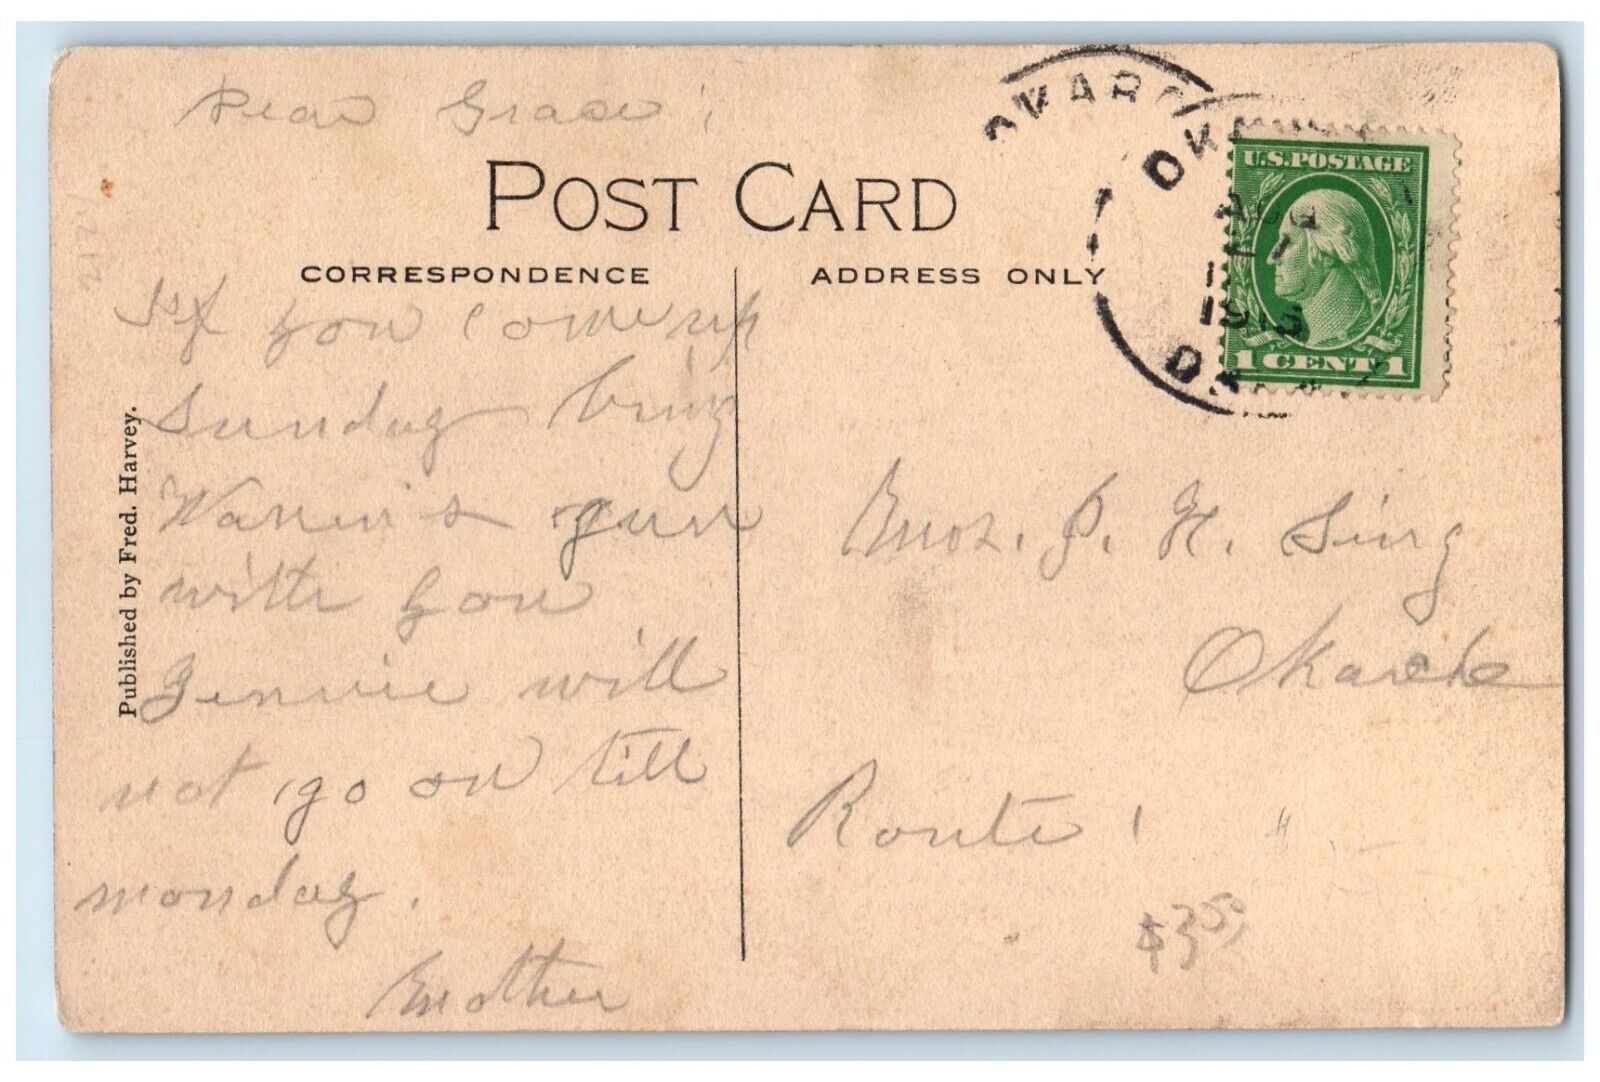 Dear Grace;
POST CARD
CORRESPONDENCE
ADDRESS ONLY
If you come up
Sunday bring
Warren's gun
with you
Jennie will
not go on till
monday.
Mother
Published by Fred. Harvey.
2121
OKARC
OK
AUG
1
1913
OKLA
U.S. POSTAGE
1 CENT 1
Mrs. J. H. Sing
Okarche
Route 1
$3.50